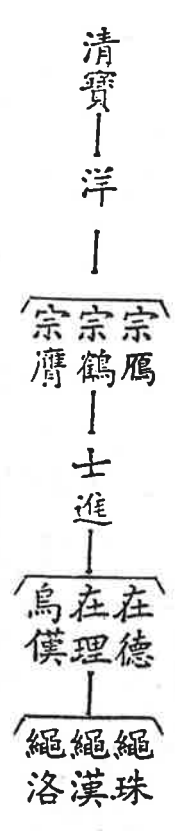 清寶
洋
宗鴈
宗鶴
宗鷹
士進
在德
在理
烏僕
繩珠
繩漢
繩洛